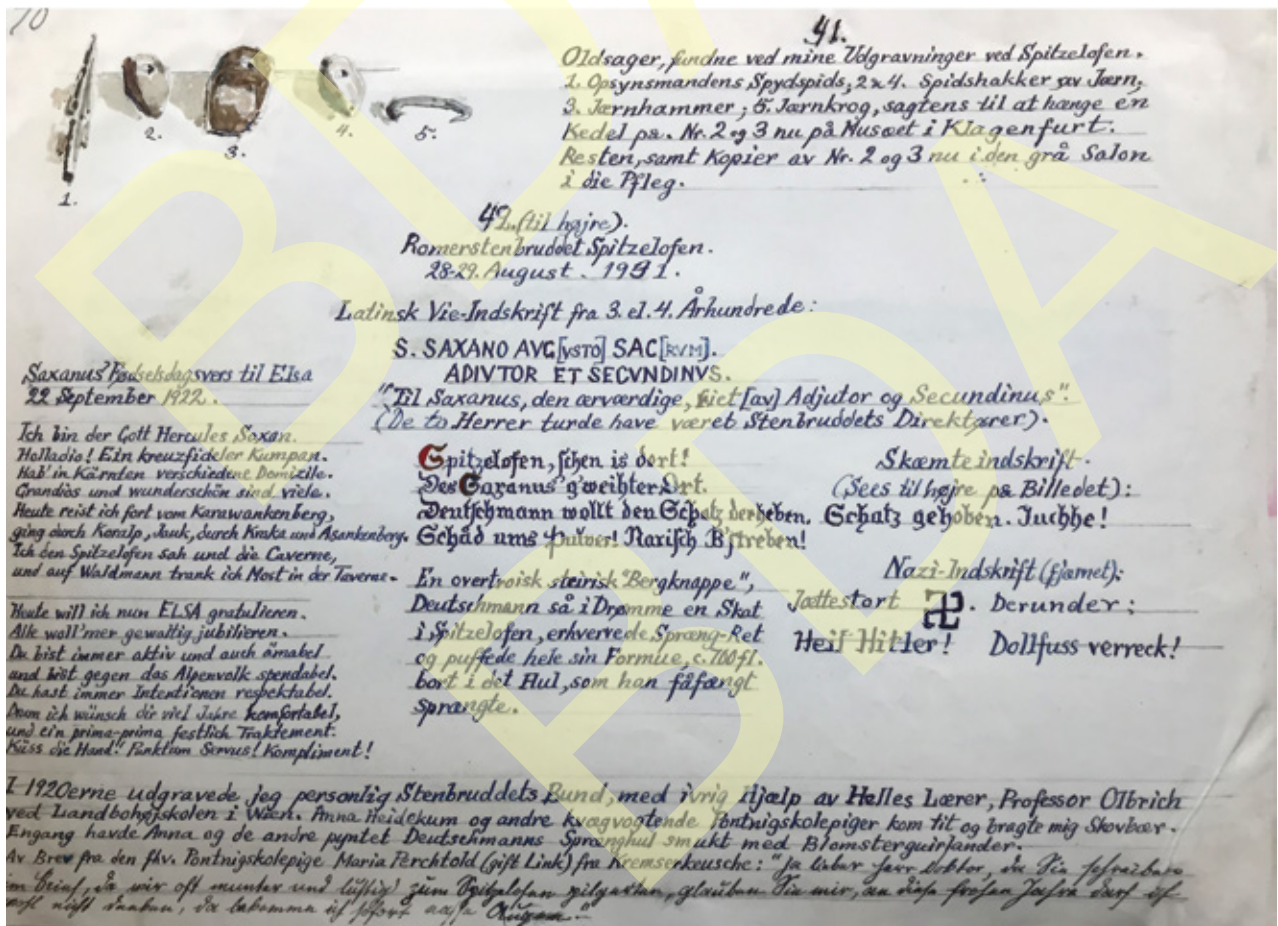 70
41.
Oldsager, fundne ved mine Udgravninger ved Spitzelofen.
1. Opsynsmandens Spydspids; 2 & 4. Spidshakker av Jærn;
3. Jærnhammer; 5. Jærnkrog, sagtens til at hænge en
Kedel på. Nr. 2 og 3 nu på Musæet i Klagenfurt.
Resten, samt Kopier av Nr. 2 og 3 nu i den grå Salon
i die Pfleg.
1.
2.
3.
4.
5.
42. (til højre).
Romerstenbruddet Spitzelofen.
28-29. August. 1931.
Latinsk Vie-Indskrift fra 3. el. 4. Århundrede:
S. SAXANO AVG[VSTO] SAC[RVM].
ADIVTOR ET SECVNDINVS.
"Til Saxanus, den ærværdige, viet [av] Adjutor og Secundinus".
(De to Herrer turde have været Stenbruddets Direktører).
Saxanus' Fødselsdagsvers til Elsa
22 September 1922.
Ich bin der Gott Hercules Saxan.
Holladio! Ein kreuzfideler Kumpan.
Hab' in Kärnten verschiedene Domizile.
Grandios und wunderschön sind viele.
Heute reist ich fort vom Karawankenberg,
ging durch Koralp, Jauk, durch Kraka und Asankenberg.
Ich den Spitzelofen sah und die Caverne,
und auf Waldmann trank ich Most in der Taverne.
Heute will ich nun ELSA gratulieren.
Alle woll'mer gewaltig jubilieren.
Du bist immer aktiv und auch ämabel
und bist gegen das Alpenvolk spendabel.
Du hast immer Intentionen respektabel.
Drum ich wünsch dir viel Jahre komfortabel,
und ein prima-prima festlich Traktement.
Küss die Hand! Punktum Servus! Kompliment!
Spitzelofen, schen is dort!
Des Saxanus' g'weihter Ort.
Deutschmann wollt den Schatz derheben.
Schad ums Pulver! Narisch B'streben!
En overtroisk steirisk "Bergknappe",
Deutschmann så i Drømme en Skat
i Spitzelofen, erhvervede Spræng-Ret
og puffede hele sin Formue, c. 700 fl.
bort i det Hul, som han fåfængt
sprængte.
Skæmteindskrift.
(Sees til højre på Billedet):
Schatz gehoben. Juchhe!
Nazi-Indskrift (fjærnet):
Jættestort 卐. Derunder:
Heil Hitler! Dollfuss verreck!
I 1920erne udgravede jeg personlig Stenbruddets Bund, med ivrig Hjælp av Helles Lærer, Professor Olbrich
ved Landbohøjskolen i Wien. Anna Heidekum og andre kvægvogtende Pontnigskolepiger kom tit og bragte mig Skovbær.
Engang havde Anna og de andre pyntet Deutschmanns Sprænghul smukt med Blomsterguirlander.
Av Brev fra den fhv. Pontnigskolepige Maria Perchtold (gift Link) fra Kremserkeusche: "Ja lieber Herr Doktor, da Sie schreiben
im Brief, da wir oft munter und lustig zum Spitzelofen pilgerten, glauben Sie mir, an diese frohen Jahre darf ich
wohl nicht denken, da bekomme ich sofort nasse Augen."